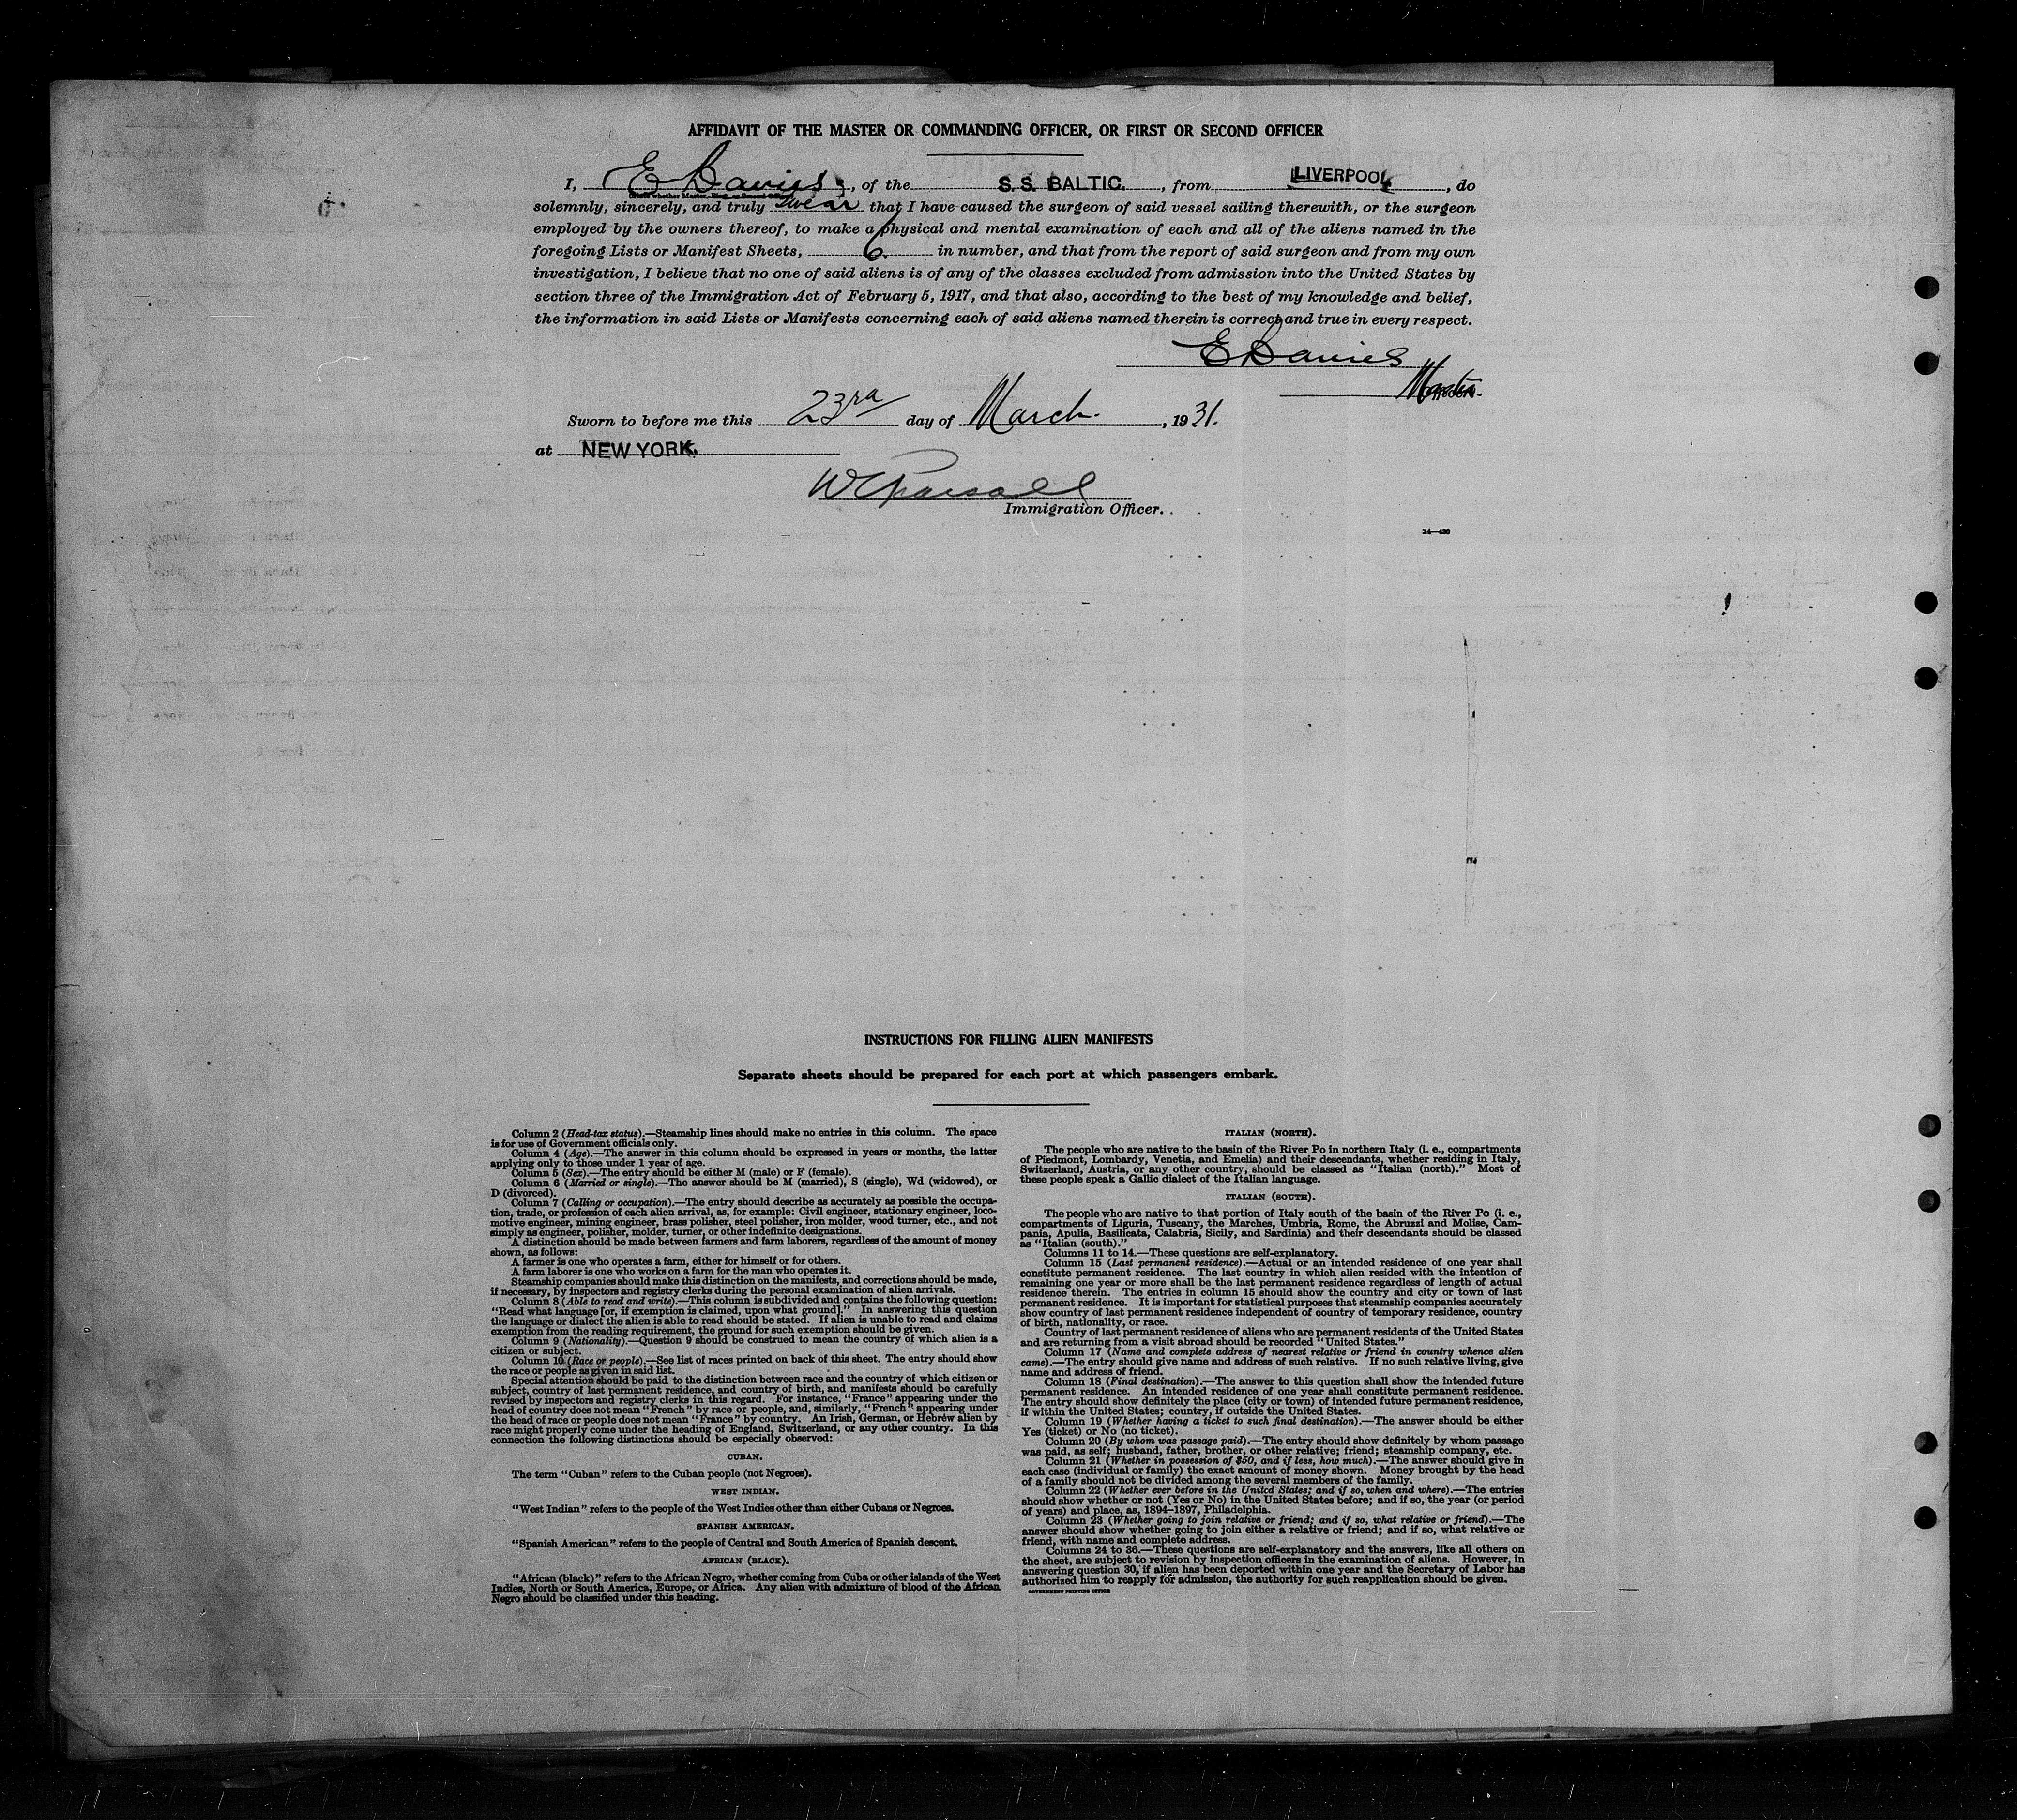 AFFIDAVIT OF THE MASTER OR COMMANDING OFFICER, OR FIRST OR SECOND OFFICER
I, E Davies, of the S.S. BALTIC. , from LIVERPOOL , do
solemnly, sincerely, and truly swear that I have caused the surgeon of said vessel sailing therewith, or the surgeon
employed by the owners thereof, to make a physical and mental examination of each and all of the aliens named in the
foregoing Lists or Manifest Sheets, 6. in number, and that from the report of said surgeon and from my own
investigation, I believe that no one of said aliens is of any of the classes excluded from admission into the United States by
section three of the Immigration Act of February 5, 1917, and that also, according to the best of my knowledge and belief,
the information in said Lists or Manifests concerning each of said aliens named therein is correct and true in every respect.
E Davies
Master
Sworn to before me this 23rd day of March , 1931.
at NEW YORK.
Immigration Officer.
14—430
INSTRUCTIONS FOR FILLING ALIEN MANIFESTS
Separate sheets should be prepared for each port at which passengers embark.
Column 2 (Head-tax status).—Steamship lines should make no entries in this column. The space
is for use of Government officials only.
Column 4 (Age).—The answer in this column should be expressed in years or months, the latter
applying only to those under 1 year of age.
Column 5 (Sex).—The entry should be either M (male) or F (female).
Column 6 (Married or single).—The answer should be M (married), S (single), Wd (widowed), or
D (divorced).
Column 7 (Calling or occupation).—The entry should describe as accurately as possible the occupa-
tion, trade, or profession of each alien arrival, as, for example: Civil engineer, stationary engineer, loco-
motive engineer, mining engineer, brass polisher, steel polisher, iron molder, wood turner, etc., and not
simply as engineer, polisher, molder, turner, or other indefinite designations.
A distinction should be made between farmers and farm laborers, regardless of the amount of money
shown, as follows:
A farmer is one who operates a farm, either for himself or for others.
A farm laborer is one who works on a farm for the man who operates it.
Steamship companies should make this distinction on the manifests, and corrections should be made,
if necessary, by inspectors and registry clerks during the personal examination of alien arrivals.
Column 8 (Able to read and write).—This column is subdivided and contains the following question:
"Read what language [or, if exemption is claimed, upon what ground]." In answering this question
the language or dialect the alien is able to read should be stated. If alien is unable to read and claims
exemption from the reading requirement, the ground for such exemption should be given.
Column 9 (Nationality).—Question 9 should be construed to mean the country of which alien is a
citizen or subject.
Column 10 (Race or people).—See list of races printed on back of this sheet. The entry should show
the race or people as given in said list.
Special attention should be paid to the distinction between race and the country of which citizen or
subject, country of last permanent residence, and country of birth, and manifests should be carefully
revised by inspectors and registry clerks in this regard. For instance, "France" appearing under the
head of country does not mean "French" by race or people, and, similarly, "French" appearing under
the head of race or people does not mean "France" by country. An Irish, German, or Hebrew alien by
race might properly come under the heading of England, Switzerland, or any other country. In this
connection the following distinctions should be especially observed:
CUBAN.
The term "Cuban" refers to the Cuban people (not Negroes).
WEST INDIAN.
"West Indian" refers to the people of the West Indies other than either Cubans or Negroes.
SPANISH AMERICAN.
"Spanish American" refers to the people of Central and South America of Spanish descent.
AFRICAN (BLACK).
"African (black)" refers to the African Negro, whether coming from Cuba or other islands of the West
Indies, North or South America, Europe, or Africa. Any alien with admixture of blood of the African
Negro should be classified under this heading.
ITALIAN (NORTH).
The people who are native to the basin of the River Po in northern Italy (i. e., compartments
of Piedmont, Lombardy, Venetia, and Emelia) and their descendants, whether residing in Italy,
Switzerland, Austria, or any other country, should be classed as "Italian (north)." Most of
these people speak a Gallic dialect of the Italian language.
ITALIAN (SOUTH).
The people who are native to that portion of Italy south of the basin of the River Po (i. e.,
compartments of Liguria, Tuscany, the Marches, Umbria, Rome, the Abruzzi and Molise, Cam-
pania, Apulia, Basilicata, Calabria, Sicily, and Sardinia) and their descendants should be classed
as "Italian (south)."
Columns 11 to 14.—These questions are self-explanatory.
Column 15 (Last permanent residence).—Actual or an intended residence of one year shall
constitute permanent residence. The last country in which alien resided with the intention of
remaining one year or more shall be the last permanent residence regardless of length of actual
residence therein. The entries in column 15 should show the country and city or town of last
permanent residence. It is important for statistical purposes that steamship companies accurately
show country of last permanent residence independent of country of temporary residence, country
of birth, nationality, or race.
Country of last permanent residence of aliens who are permanent residents of the United States
and are returning from a visit abroad should be recorded "United States."
Column 17 (Name and complete address of nearest relative or friend in country whence alien
came).—The entry should give name and address of such relative. If no such relative living, give
name and address of friend.
Column 18 (Final destination).—The answer to this question shall show the intended future
permanent residence. An intended residence of one year shall constitute permanent residence.
The entry should show definitely the place (city or town) of intended future permanent residence,
if within the United States; country, if outside the United States.
Column 19 (Whether having a ticket to such final destination).—The answer should be either
Yes (ticket) or No (no ticket).
Column 20 (By whom was passage paid).—The entry should show definitely by whom passage
was paid, as self; husband, father, brother, or other relative; friend; steamship company, etc.
Column 21 (Whether in possession of $50, and if less, how much).—The answer should give in
each case (individual or family) the exact amount of money shown. Money brought by the head
of a family should not be divided among the several members of the family.
Column 22 (Whether ever before in the United States; and if so, when and where).—The entries
should show whether or not (Yes or No) in the United States before; and if so, the year (or period
of years) and place, as, 1894-1897, Philadelphia.
Column 23 (Whether going to join relative or friend; and if so, what relative or friend).—The
answer should show whether going to join either a relative or friend; and if so, what relative or
friend, with name and complete address.
Columns 24 to 36.—These questions are self-explanatory and the answers, like all others on
the sheet, are subject to revision by inspection officers in the examination of aliens. However, in
answering question 30, if alien has been deported within one year and the Secretary of Labor has
authorized him to reapply for admission, the authority for such reapplication should be given.
GOVERNMENT PRINTING OFFICE